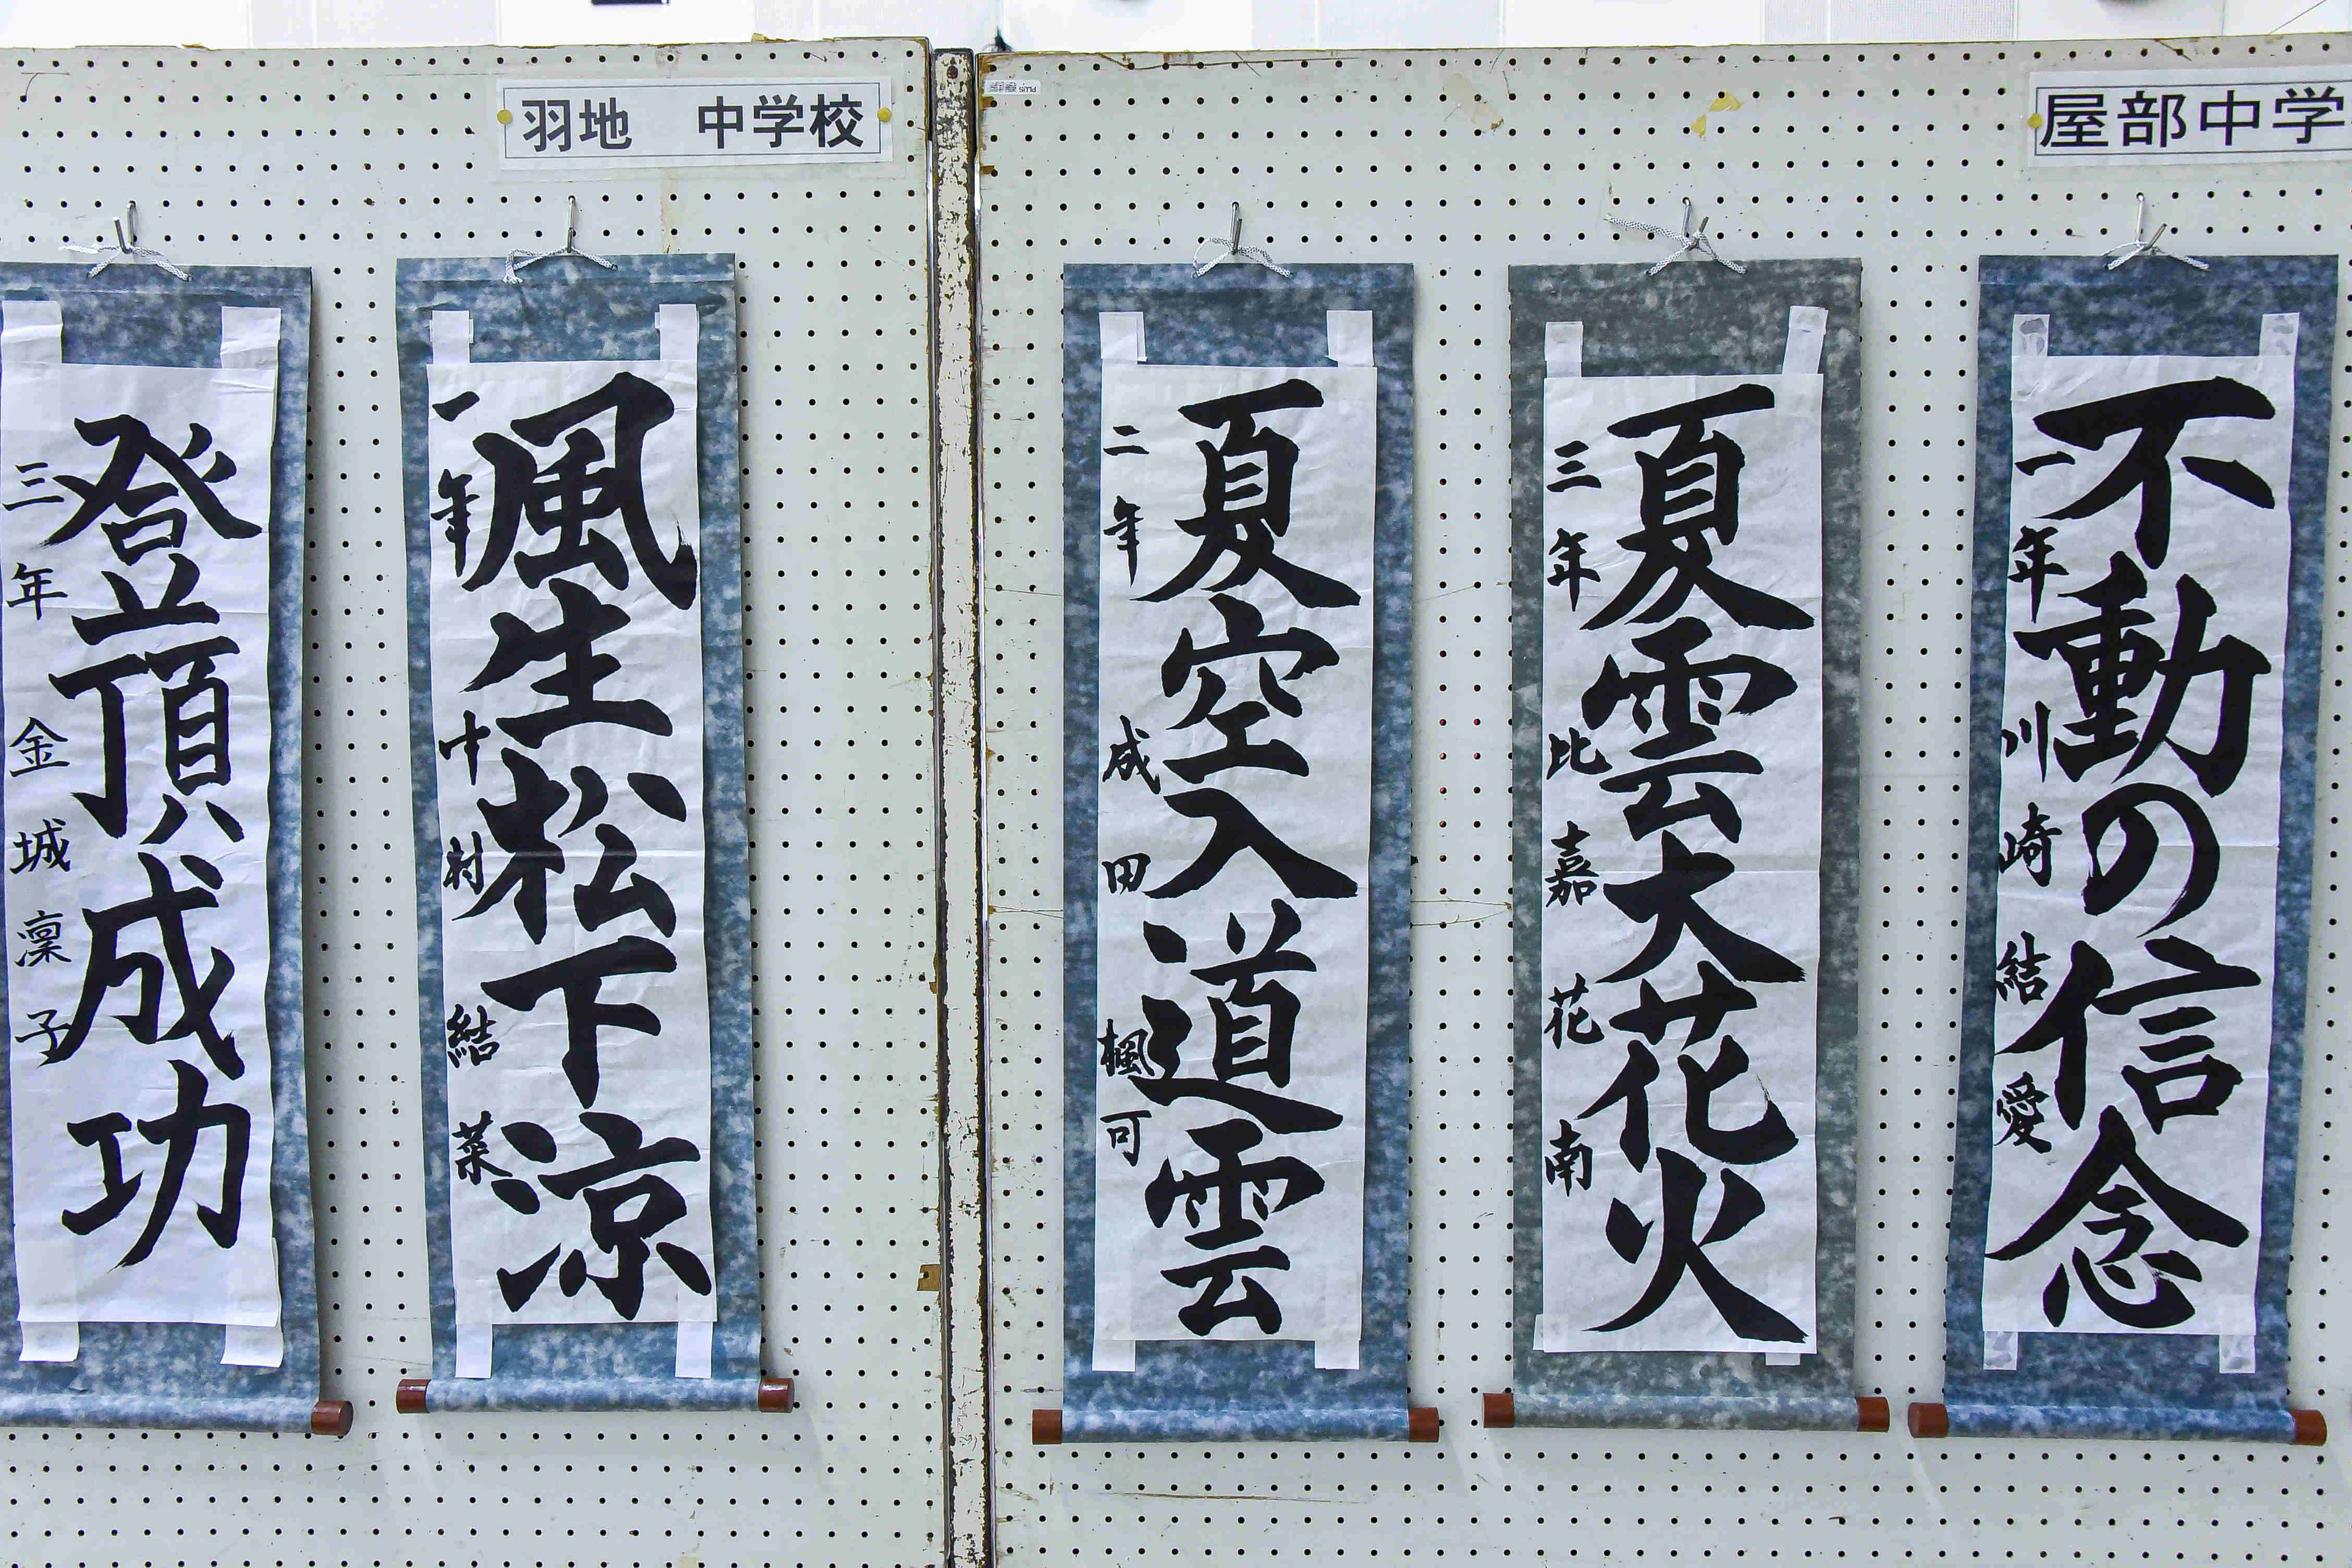 羽地　中学校
屋部中学
登頂成功
三年 金城凛子
風生松下涼
一年 中村結菜
夏空入道雲
二年 成田楓可
夏雲大花火
三年 比嘉花南
不動の信念
一年 川崎結愛
PLUS